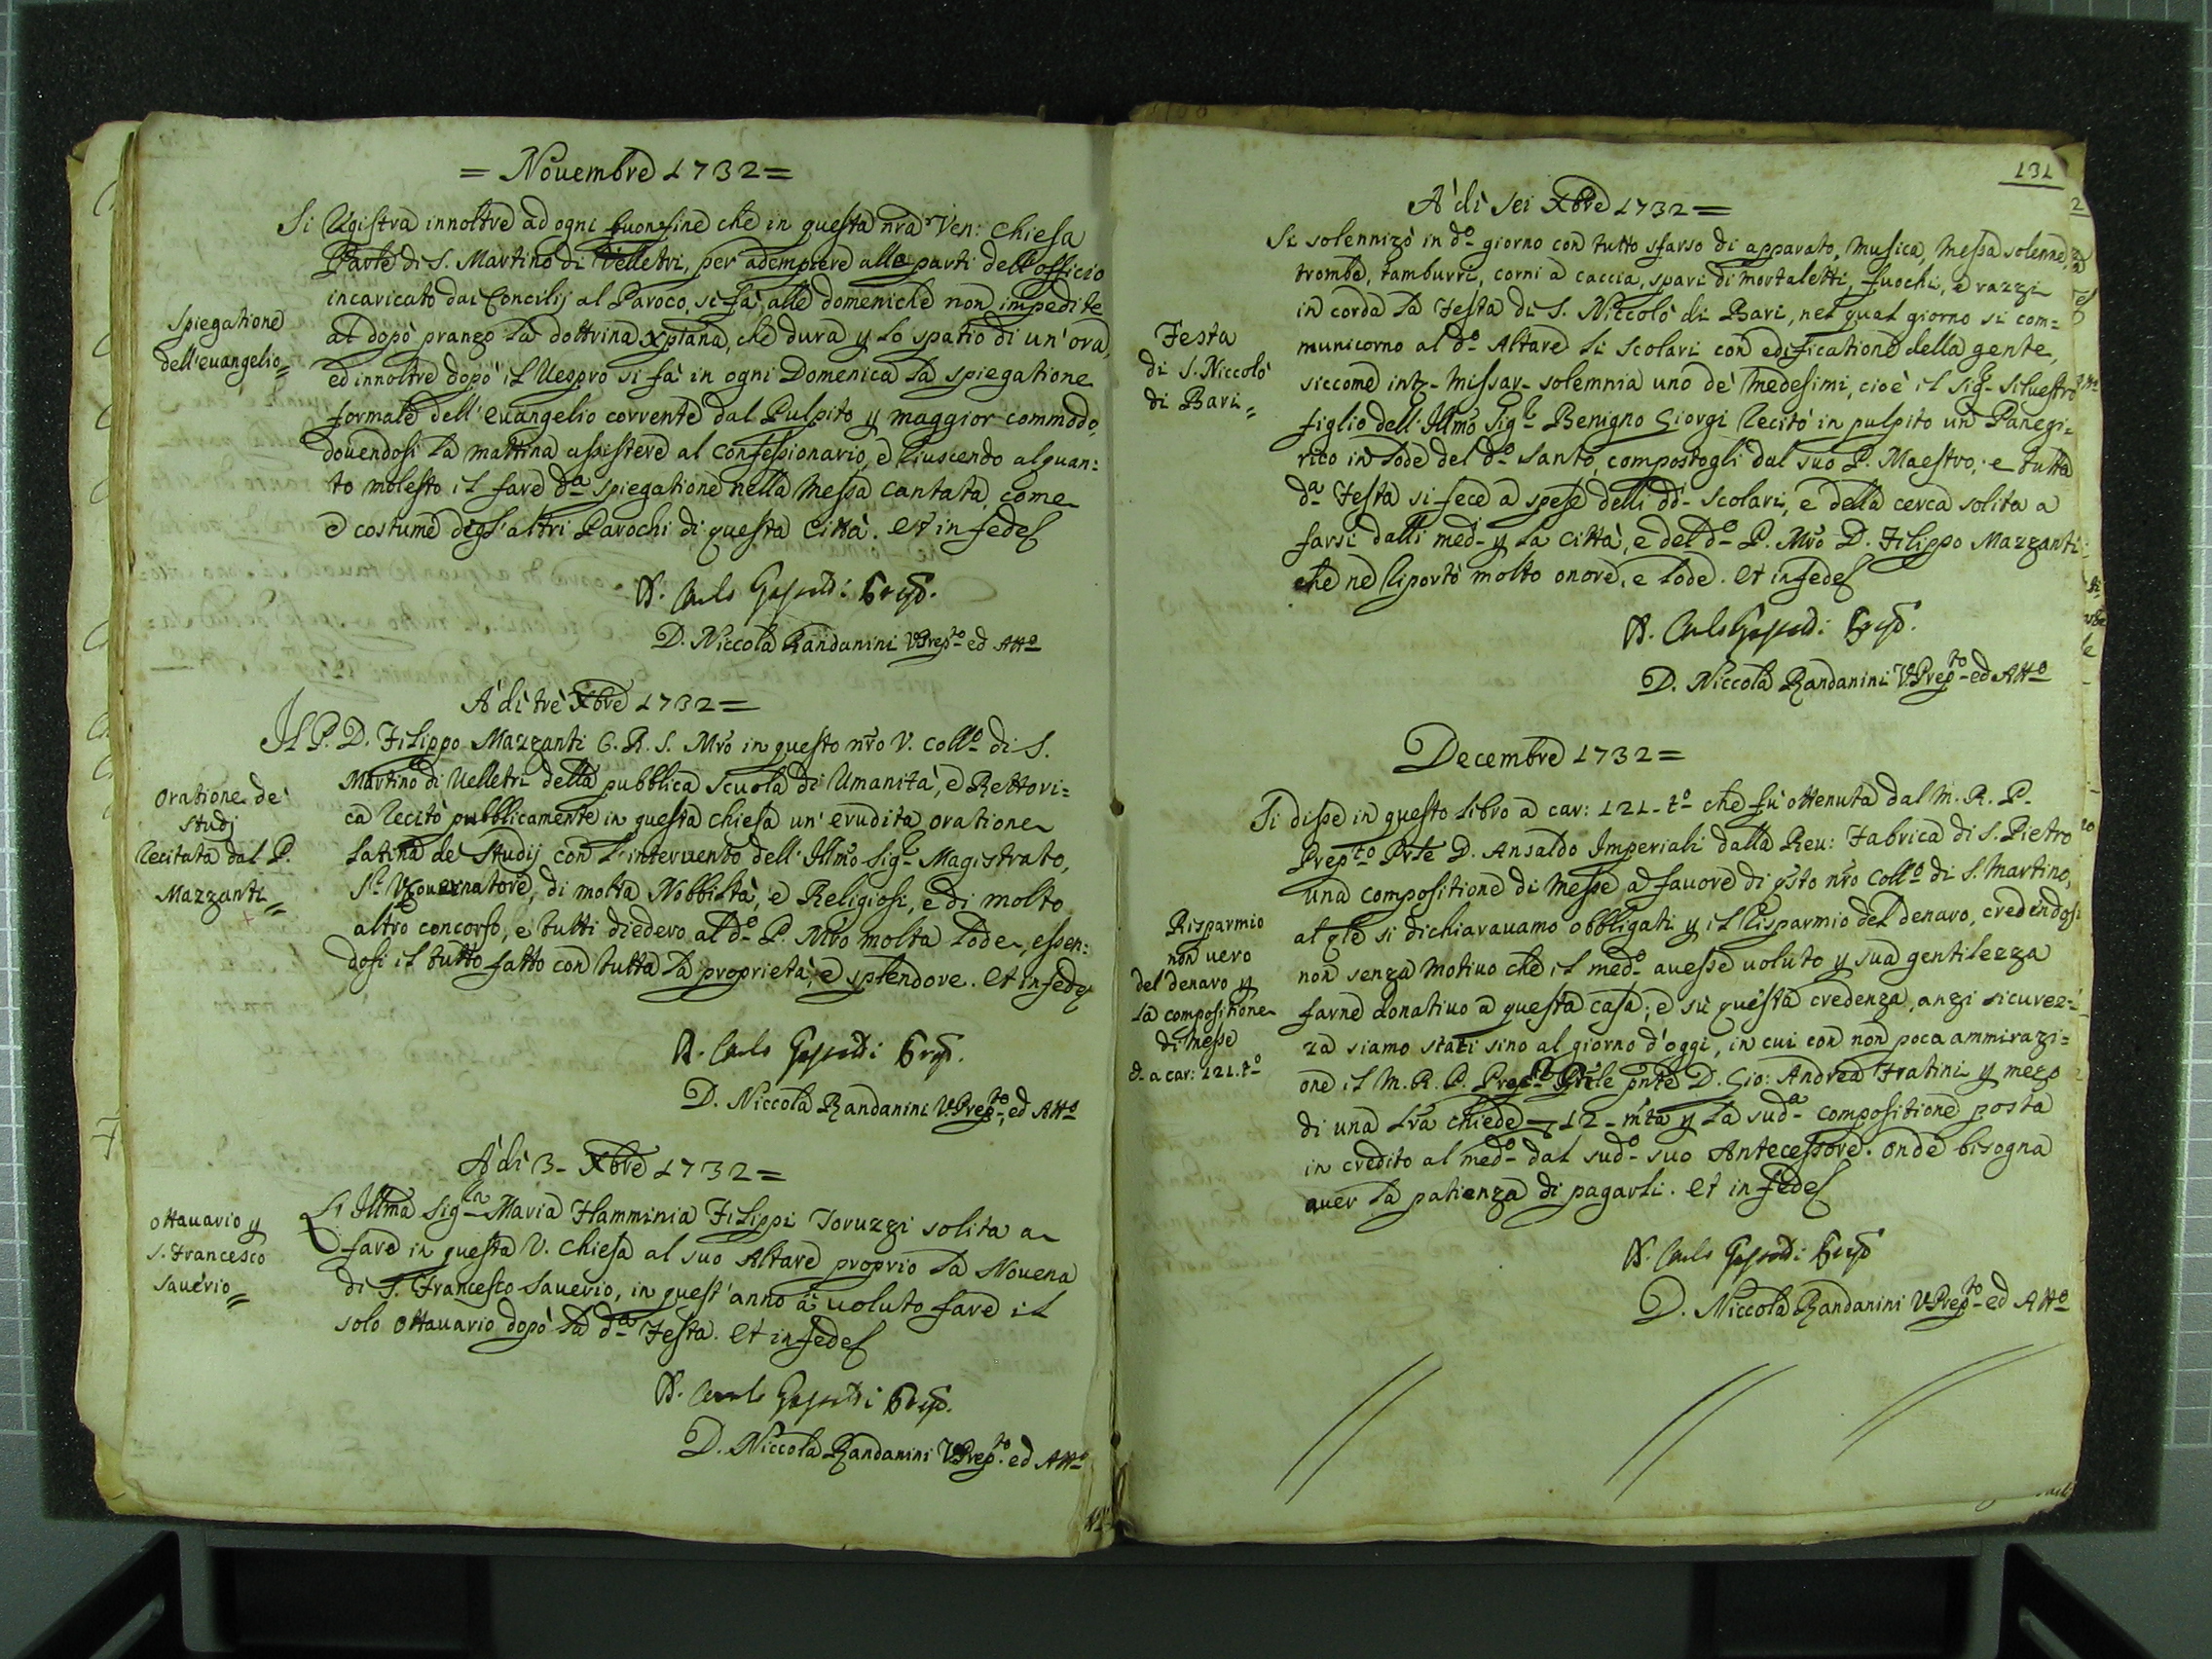 = Novembre 1732 =
Si Registra innoltre ad ogni buon fine che in questa nrã Ven: Chiesa
Parle di S. Martino di Velletri, per adempiere alle parti dell'officio
incaricato dai Concilij al Paroco, si fà alle domeniche non impedite
al dopò pranzo la dottrina Xptana, che dura p lo spatio di un'ora,
ed innoltre dopò il Vespro si fà in ogni Domenica la spiegatione
formale dell'euangelio corrente dal Pulpito p maggior commodo,
douendosi la mattina assistere al Confessionario, e riuscendo alquan=
to molesto il fare dª spiegatione nella Messa Cantata, come
è costume degl'altri Parochi di questa Città. Et in fede
Spiegatione
dell'euangelio=
D. Carlo Gaspardi
D. Niccola Randanini VPrepto ed Atto
A' dì trè Xbre 1732=
Il P. D. Filippo Mazzanti C. R. S. Mro in questo nro V. Collo di S.
Martino di Velletri della pubblica Scuola di Umanità, e Rettori=
ca recitò pubblicamente in questa chiesa un'erudita oratione
latina de' Studij con l'intervento dell'Illmo Sigr Magistrato,
Sr VGouernatore, di molta Nobbiltà, e Religiosi, e di molto
altro concorso, e tutti diedero al do P. Mro molta lode, essen=
dosi il tutto fatto con tutta la proprietà, e splendore. Et in fede
Oratione de'
Studj
recitata dal P.
Mazzanti=
D. Carlo Gaspardi
D. Niccola Randanini V.Prepto ed Atto
A' di 3- Xbre 1732=
L'Illma Sigra Maria Flamminia Filippi Toruzzi solita a
fare in questa V. Chiesa al suo Altare proprio la Nouena
di S. Francesco Sauerio, in quest'anno à uoluto fare il
solo Ottauario dopò la dª Festa. Et in fede
Ottauario p
S. Francesco
Sauerio=
D. Carlo Gaspardi
D. Niccola Randanini VPrepto ed Atto
131
A' dì sei Xbre 1732=
Si solennizò in do giorno con tutto sfarso di apparato, Musica, Messa solenne,
trombe, tamburri, corni a caccia, spari di mortaletti, fuochi, e razzi
in corda la Festa di S. Niccolò di Bari, nel qual giorno si com=
municorno al do Altare li Scolari con edificatione della gente,
siccome intr- Missar- solemnia uno de' medesimi, cioè il Sigr Siluestro
figlio dell'Illmo Sigr Benigno Giorgi recitò in pulpito un Panegi=
rico in lode del do Santo, compostogli dal suo P. Maestro, e tutta
dª Festa si fece a spese delli dd- Scolari, e della cerca solita a
farsi dalli med- p la Città, e del do P. Mro D. Filippo Mazzanti
che ne riportò molto onore, e lode. Et in fede
Festa
di S. Niccolò
di Bari=
D. Carlo Gaspardi
D. Niccola Randanini V.Prepto ed Atto
Decembre 1732=
Si disse in questo libro a car: 121-to che fù ottenuta dal M. R. P.
Prepto Prle D. Ansaldo Imperiali dalla Reu: Fabrica di S. Pietro
una compositione di Messe a fauore di qsto nro Collo di S. Martino,
al qle si dichiarauamo obbligati p il risparmio del denaro, credendosi
non senza motiuo che il medo auesse uoluto p sua gentilezza
farne donatiuo a questa casa, e sù questa credenza, anzi sicurez=
za siamo stati sino al giorno d'oggi, in cui con non poca ammirazi=
one il M. R. P. Prepto Prle pnte D. Gio: Andrea Fratini p mezo
di una lra chiede 12-mta p la sudª compositione posta
in credito al medo dal sudo suo Antecessore. Onde bisogna
auer la patienza di pagarli. Et in fede
Risparmio
non uero
del denaro p
la compositione
di Messe
d- a car: 121.to
D. Carlo Gaspardi
D. Niccola Randanini VPrepto ed Atto